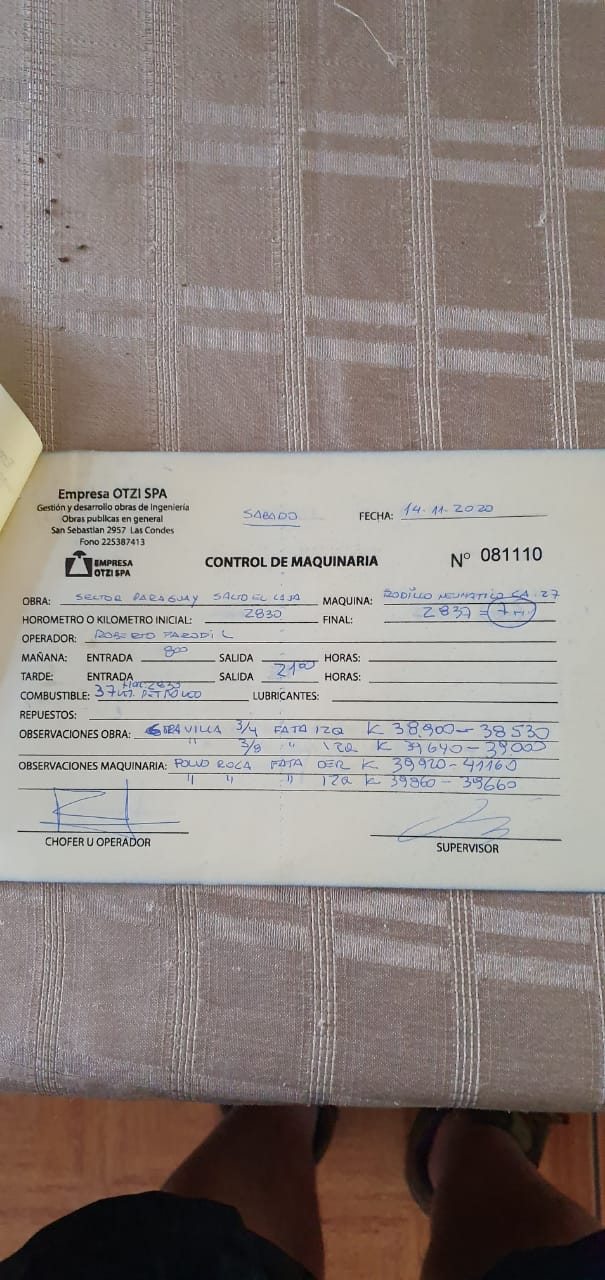 Empresa OTZI SPA
Gestión y desarrollo obras de Ingeniería
Obras publicas en general
San Sebastian 2957 Las Condes
Fono 225387413
EMPRESA
OTZI SPA
SABADO
FECHA: 14-11-2020
CONTROL DE MAQUINARIA
Nº 081110
OBRA: SECTOR PARAGUAY SALTO EL LAJA MAQUINA: RODILLO NEUMATICO CA.27
HOROMETRO O KILOMETRO INICIAL: 2830 FINAL: 2837 = 7
OPERADOR: ROBERTO PARODI L
MAÑANA: ENTRADA 800 SALIDA HORAS:
TARDE: ENTRADA SALIDA 2100 HORAS:
COMBUSTIBLE: 37 LT. PETROLEO HOR. 2830 LUBRICANTES:
REPUESTOS:
OBSERVACIONES OBRA: GRAVILLA 3/4 FATA IZQ K 38.900 - 38530
" 3/8 " IZQ K 39640 - 39.000
OBSERVACIONES MAQUINARIA: POLVO ROCA FATA DER K 39.920 - 41160
" " " IZQ K 39860 - 39660
CHOFER U OPERADOR
SUPERVISOR